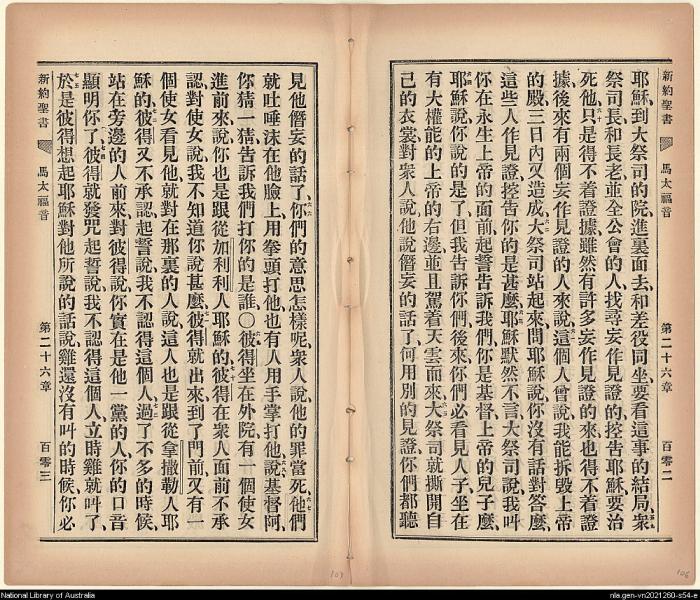 新約聖書 馬太福音 第二十六章 百零二
耶穌、到大祭司的院進裏面去、和差役同坐、要看這事的結局、衆
祭司長和長老、並全公會的人、找尋妄作見證的、控告耶穌、要治
死他、只是得不着證據、雖然有許多妄作見證的來、也得不着證
據、後來有兩個妄作見證的人來說、這個人曾說、我能拆毀上帝
的殿、三日內又造成、大祭司站起來、問耶穌說、你沒有話對答麽、
這些人作見證、控告你的是甚麽、耶穌默然不言、大祭司說、我叫
你在永生上帝的面前、起誓告訴我們、你是基督上帝的兒子麽、
耶穌說、你說的是了、但我告訴你們、後來你們必看見人子、坐在
有大權能的上帝的右邊、並且駕着天雲而來、大祭司就撕開自
己的衣裳、對衆人說、他說僭妄的話了、何用別的見證、你們都聽
新約聖書 馬太福音 第二十六章 百零三
見他僭妄的話了、你們的意思怎樣呢、衆人說、他的罪當死、他們
就吐唾沫在他臉上、用拳頭打他、也有人用手掌打他、說、基督阿、
你猜一猜、告訴我們打你的是誰、〇彼得坐在外院、有一個使女
進前來說、你也是跟從加利利人耶穌的、彼得在衆人面前不承
認、對使女說、我不知道你說甚麽、彼得就出來、到了門前、又有一
個使女看見他、就對在那裏的人說、這人也是跟從拿撒勒人耶
穌的、彼得又不承認、起誓說、我不認得這個人、過了不多的時候、
站在旁邊的人前來對彼得說、你實在是他一黨的人、你的口音
顯明你了、彼得就發咒起誓說、我不認得這個人、立時雞就叫了、
於是彼得想起耶穌對他所說的話說、雞還沒有叫的時候、你必
107
106
National Library of Australia
nla.gen-vn2021260-s54-e